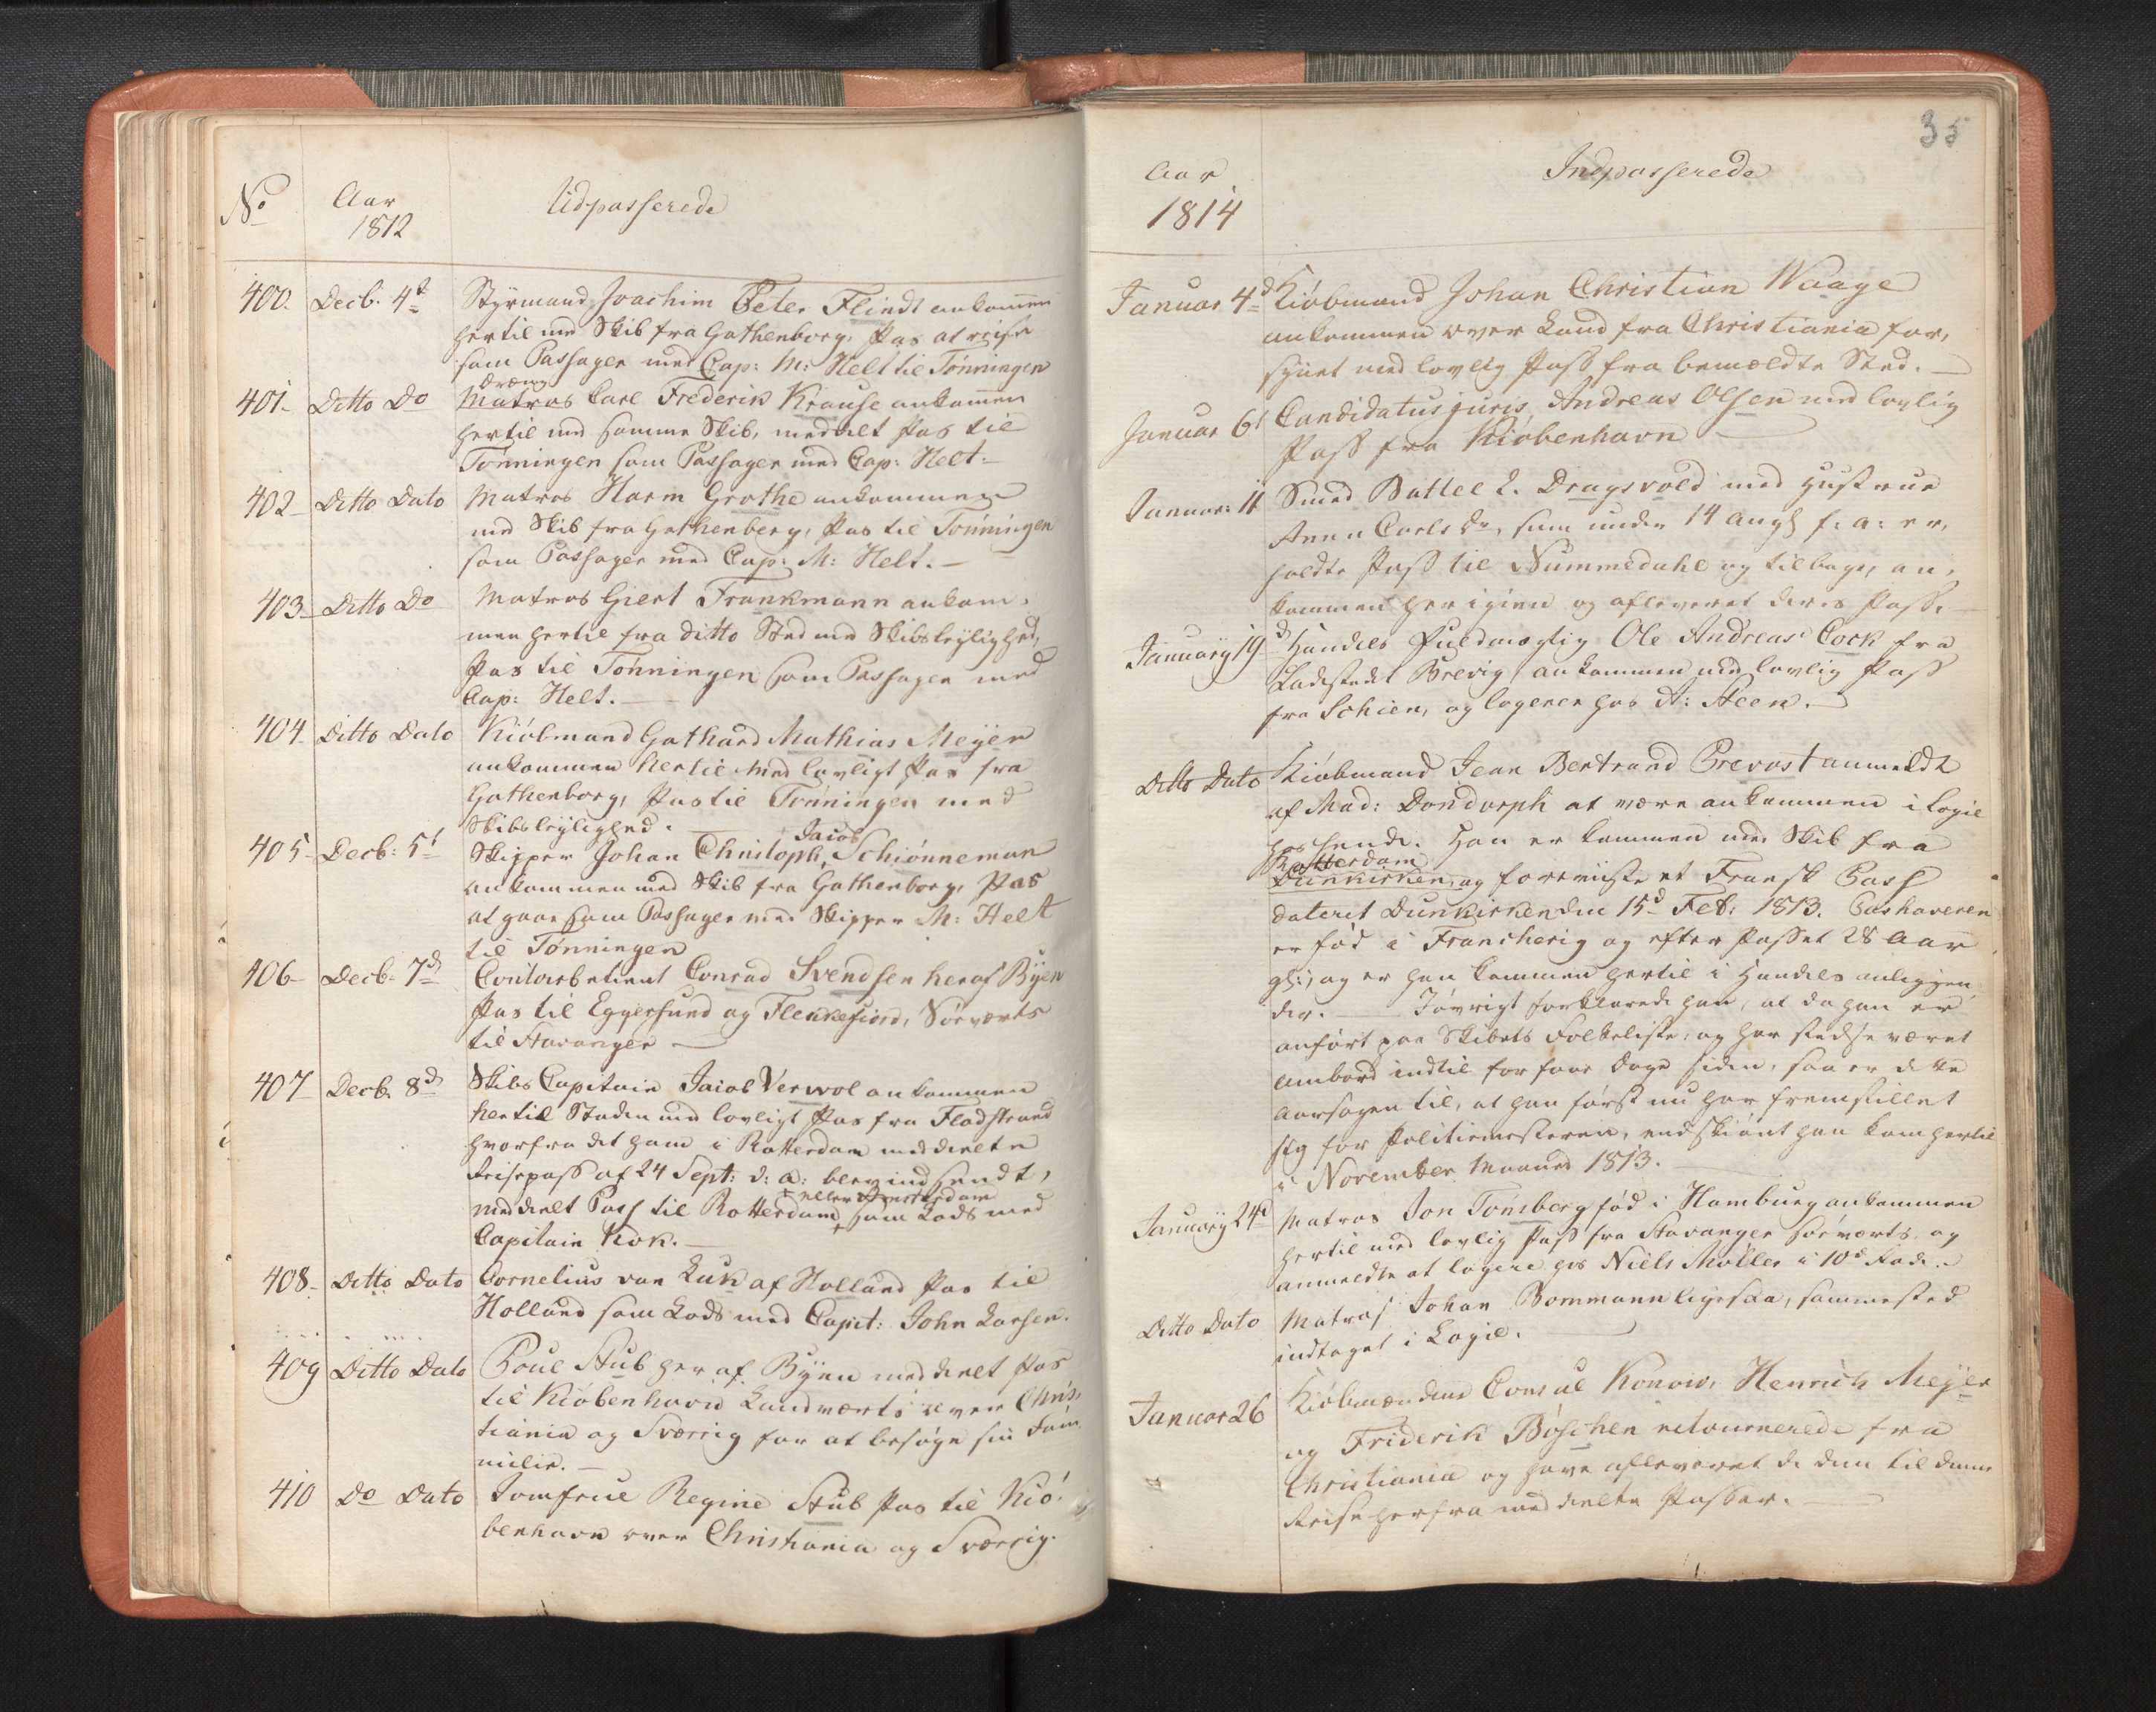 No
Aar
1812
Udpasserede
400. Decb. 4d Styrmand Joachim Peter Flindt ankommen
hertil med Skib fra Gothenborg, Pas at reise
som Passager med Cap: M: Helt til Tønningen
Dreng
401- Ditto Do Matros Carl Frederik Krause ankommen
hertil med samme Skib, meddelt Pas til
Tønningen som Passager med Cap: Helt.-
402- Ditto Dato Matros Harm Grothe ankommen
med Skib fra Gothenberg, Pas til Tønningen
som Passager med Cap: M: Helt. -
403- Ditto Do Matros Giert Frankmann ankom-
men hertil fra ditto Sted med Skibsleylighed,
Pas til Tønningen som Passager med
Cap: Helt. -
404. Ditto Dato Kiøbmand Gothard Mathias Meÿer
ankommen hertil med lovligt Pas fra
Gothenborg, Pas til Tønningen med
Skibsleylighed.
Jacob
405- Decb: 5t Skipper Johan Christoph, Schiønneman
ankommen med Skib fra Gothenborg, Pas
at gaae som Passager med Skipper M: Helt
til Tønningen
406- Decb. 7d Contoirbetient Conrad Svendsen her af Byen
Pas til Eggersund og Flekkefiord, Sørværts
til Stavanger -
407- Decb. 8d Skibs Capitain Jacob Verwol ankommen
hertil Staden med lovligt Pas fra Fladstrand
hvorfra det ham i Rotterdam meddeelte
Reisepass af 24 Sept: d: a: blev indsendt,
+ eller Amsterdam
meddeelt Pass til Rotterdam + som Lods med
Capitain Kok. -
408- Ditto Dato Cornelius van Luk af Holland Pas til
Holland som Lods med Capit: John Larsen.
409 Ditto Dato Poul Stub her af Byen meddeelt Pas
til Kiøbenhavn Landværts over Chris-
tiania og Sverrig for at besøge sin Fam-
milie. -
410 Do Dato Jomfrue Regine Stub Pas til Kiø-
benhavn over Christiania og Sverrig.
35
Aar
1814
Indpasserede
Januar 4d Kiøbmand Johan Christian Waage
ankommen over Land fra Christiania for-
synet med lovlig Pass fra bemældte Sted. -
Januar 6t Candidatus juris Andreas Olsen med lovlig
Pass fra Kiøbenhavn -
Januar: 11 Smed Battel L. Dragsvold med Hustrue
Anna Carlsdr, som under 14 Augs f: a: er-
holdte Pass til Nummedahl og tilbage, an-
kommen her igien og afleveret deres Pass. -
Januarÿ 19d Handels Fuldmægtig Ole Andreas Cock fra
Ladestedet Brevig, ankommen med lovlig Pass
fra Schien, og logerer hos A: Steen. -
Ditto Dato Kiøbmand Jean Bertrand Prevost anmeldt
af Mad: Dondorph at være ankommen i Logie
hos hende. Han er kommen med Skib fra
Rotterdam
Dunkirken, og foreviiste et Fransk Pass
dateret Dunkirken den 15d Feb: 1813. Pashaveren
er fød i Franckerig og efter Passet 28 Aar
gl:, og er han kommen hertil i Handels anliggen-
der. - Iøvrigt forklarede han, at da han er
anført paa Skibets Folkeliste, og har stedse været
ombord indtil for faae Dage siden, saa er dette
Aarsagen til, at han først nu har fremstillet
sig for Politiemesteren, endskiønt han kom hertil
i November Maaned 1813. -
Januarÿ 24d Matros Jon Tønsberg fød i Hamburg ankommen
hertil med lovlig Pass fra Stavanger sørværts og
anmeldte at logere hos Niels Møller i 10d Rode.
Ditto Dato Matros Johan Bommann ligesaa, sammested
indtaget i Logie. -
Januar 26 Kiøbmændene Consul Konow, Henrich Meÿer
og Friderik Bøschen retournerede fra
Christiania og have afleveret de dem til denne
Reise herfra meddeelte Passer. -